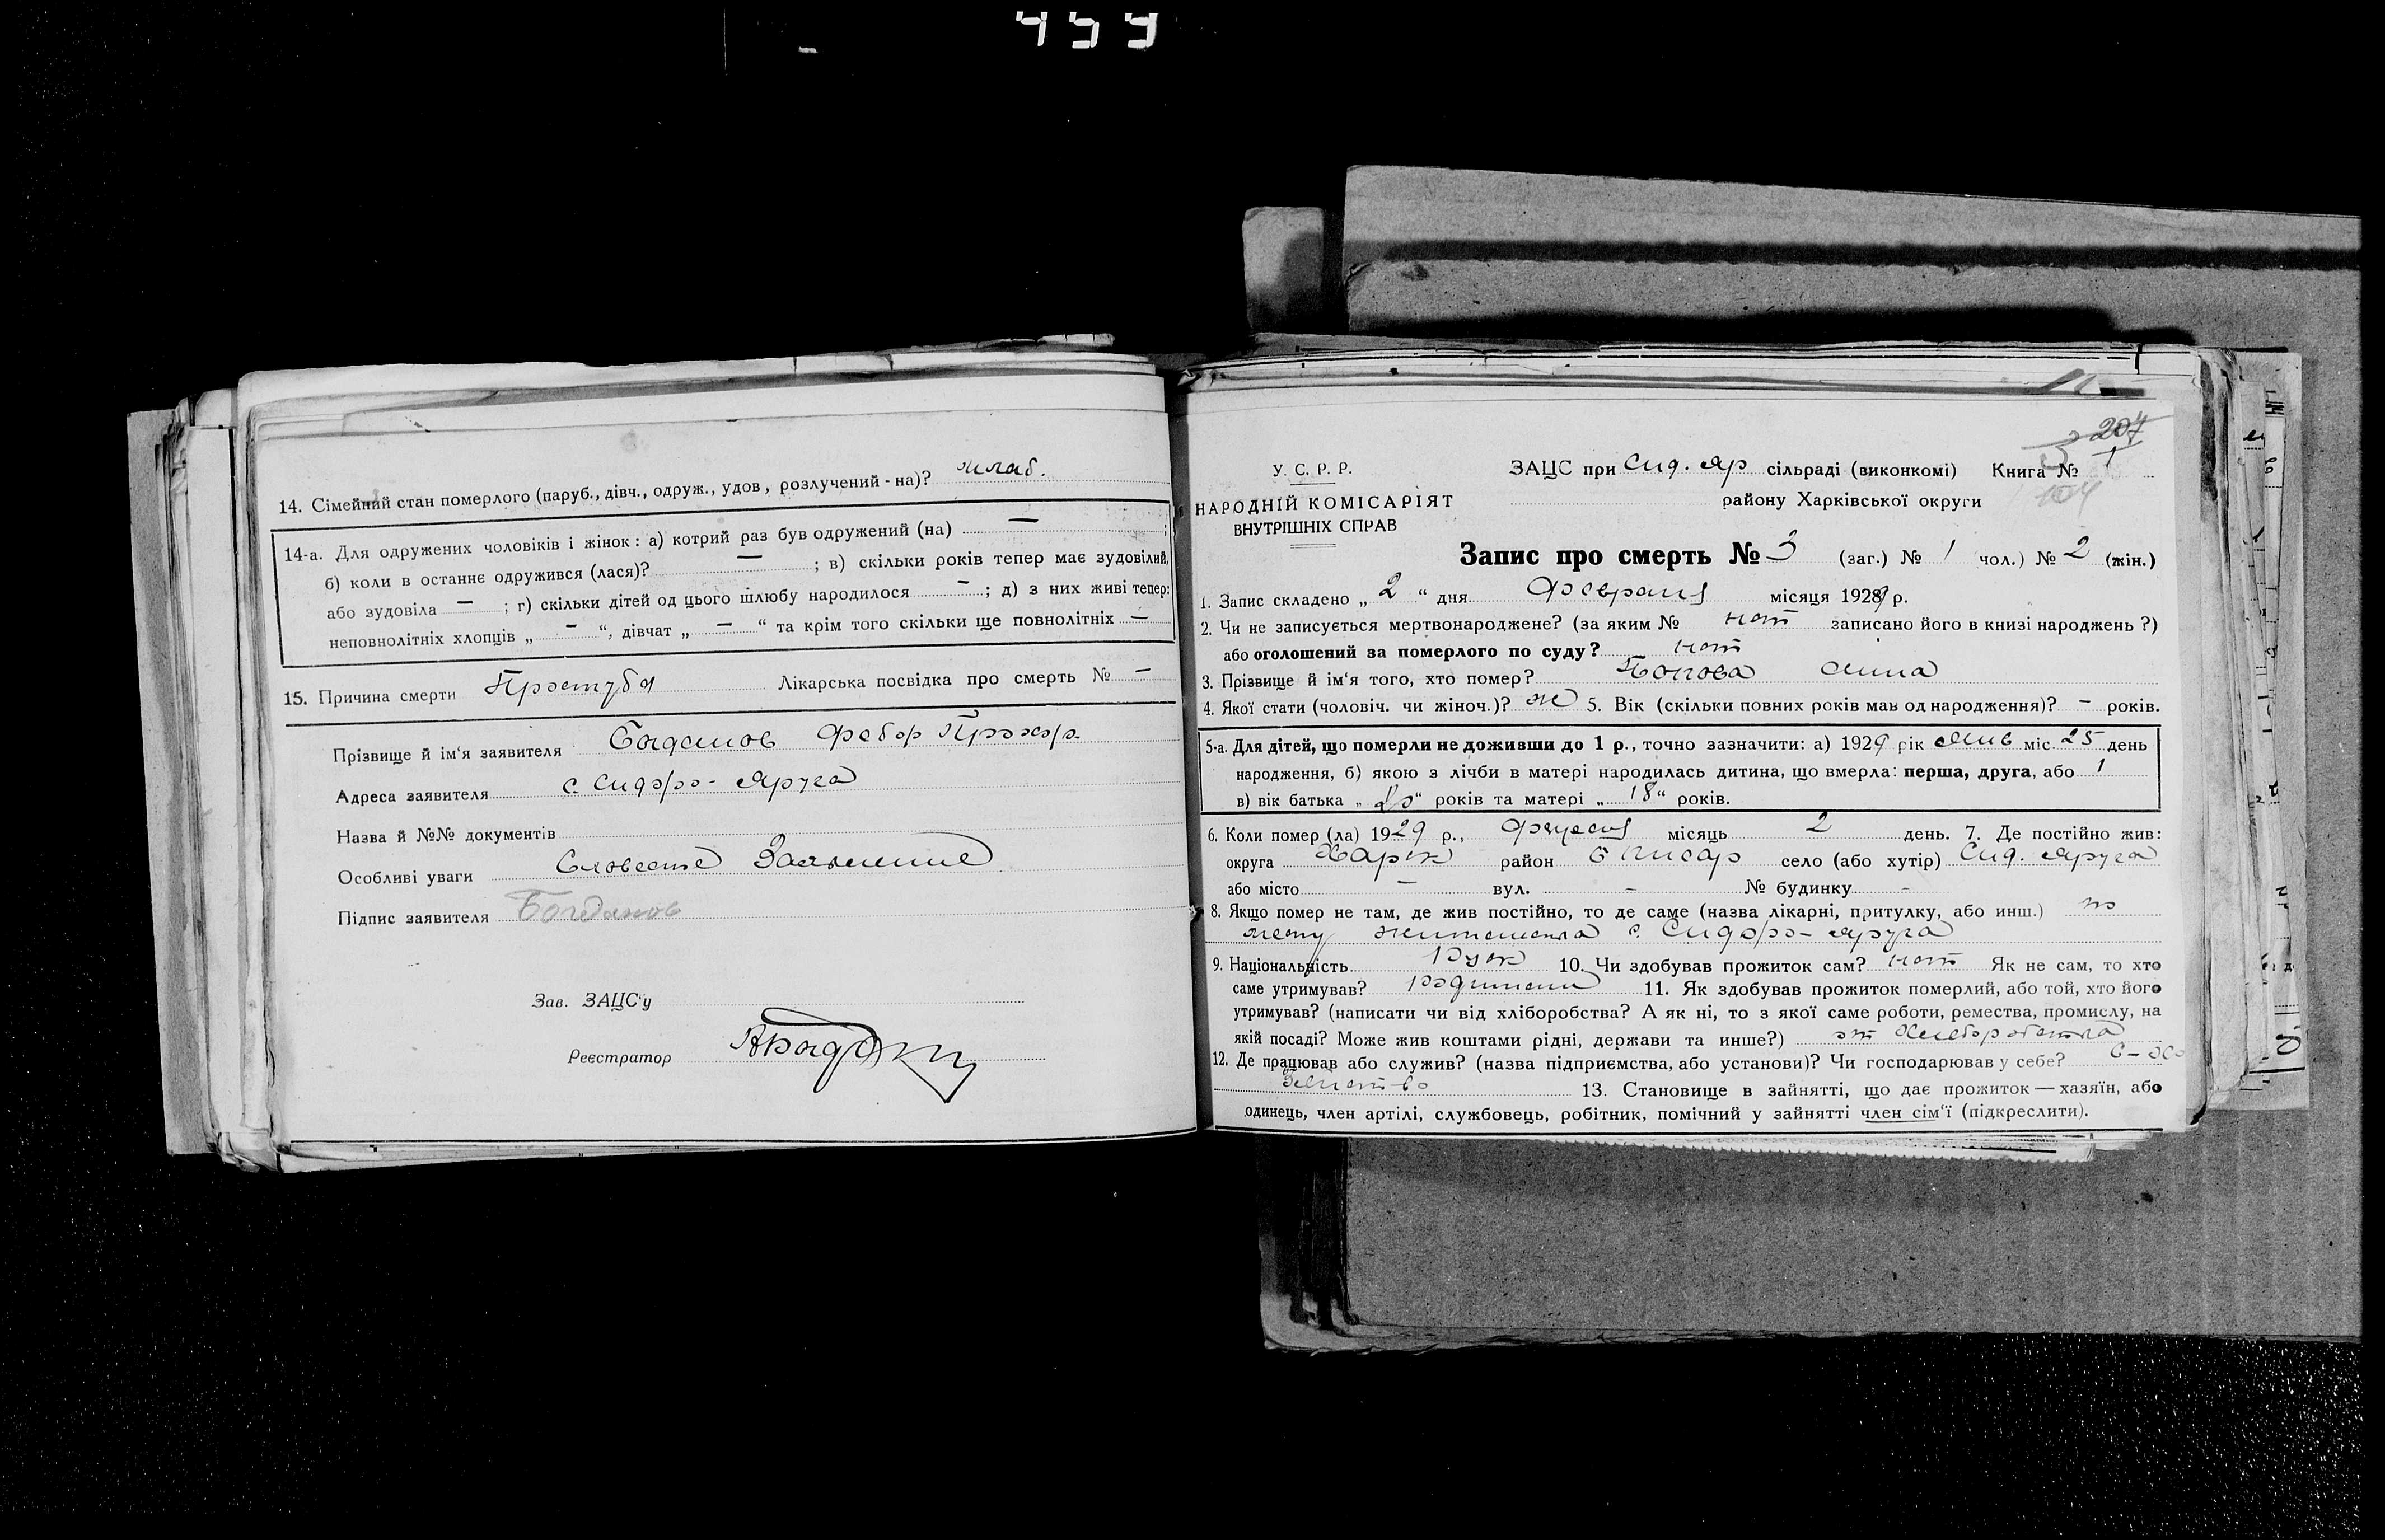 459
14. Сімейний стан померлого (паруб., дівч., одруж., удов, розлучений - на)? млад.
14-а. Для одружених чоловіків і жінок: а) котрий раз був одружений (на) — ;
б) коли в останнє одружився (лася)? — ; в) скільки років тепер має зудовілий,
або зудовіла — ; г) скільки дітей од цього шлюбу народилося — ; д) з них живі тепер:
неповнолітніх хлопців „ — “, дівчат „ — “ та крім того скільки ще повнолітніх —
15. Причина смерти Простуда Лікарська посвідка про смерть № —
Прізвище й ім'я заявителя Богданов Федор Прохор.
Адреса заявителя с. Сидоро-Яруга
Назва й №№ документів
Особливі уваги Словесное Заявление
Підпис заявителя Богданов
Зав. ЗАЦС'у
Реєстратор
207
1
104
У. С. Р. Р.
НАРОДНІЙ КОМІСАРІЯТ
ВНУТРІШНІХ СПРАВ
ЗАЦС при Сид. Яр сільраді (виконкомі) Книга №
району Харківської округи
Запис про смерть № 3 (заг.) № 1 чол.) № 2 (жін.)
1. Запис складено „ 2 “ дня Февраля місяця 1929 р.
2. Чи не записується мертвонароджене? (за яким № нет записано його в книзі народжень ?)
або оголошений за померлого по суду? нет
3. Прізвище й ім'я того, хто помер? Попова Анна
4. Якої стати (чоловіч. чи жіноч.)? ж 5. Вік (скільки повних років мав од народження)? - років.
5-а. Для дітей, що померли не доживши до 1 р., точно зазначити: а) 1929 рік Янв міс. 25 день
народження, б) якою з лічби в матері народилась дитина, що вмерла: перша, друга, або 1
в) вік батька „ “ років та матері „ 18 “ років.
6. Коли помер (ла) 1929 р., місяць 2 день. 7. Де постійно жив:
округа Харьк район село (або хутір) Сид. Яруга
або місто — вул. — № будинку -
8. Якщо помер не там, де жив постійно, то де саме (назва лікарні, притулку, або инш.) по
месту жительства с. Сидоро-Яруга
9. Національність Руск 10. Чи здобував прожиток сам? нет Як не сам, то хто
саме утримував? Родители 11. Як здобував прожиток померлий, або той, хто його
утримував? (написати чи від хліборобства? А як ні, то з якої саме роботи, ремества, промислу, на
якій посаді? Може жив коштами рідні, держави та инше?) от
12. Де працював або служив? (назва підприємства, або установи)? Чи господарював у себе?
13. Становище в зайнятті, що дає прожиток — хазяїн, або
одинець, член артілі, службовець, робітник, помічний у зайнятті член сім'ї (підкреслити).